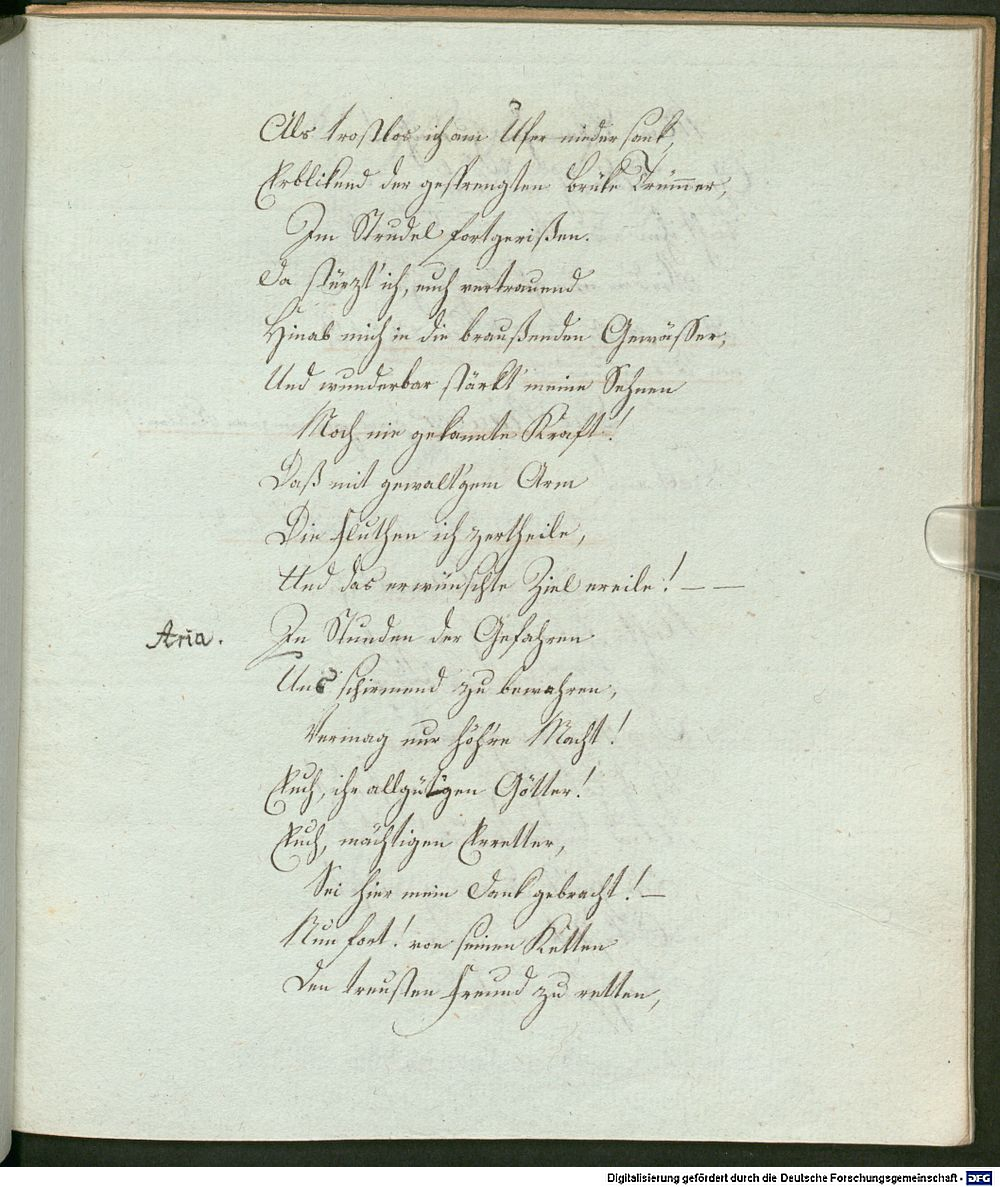 Als trostlos ich am Ufer niedersank,
Erblikend der gesprengten Brüke Trümmer,
Im Strudel fortgerißen.
Da stürzt' ich, euch vertrauend
Hinab mich in die braußenden Gewässer,
Und wunderbar stärkt' meine Sehnen
Noch nie gekannte Kraft!
Daß mit gewalt'gem Arm
Die Fluthen ich zertheile,
Und das erwünschte Ziel ereile! — —
Aria. In Stunden der Gefahren
Uns schirmend zu bewahren,
Vermag nur höh're Macht!
Euch, ihr allgüt'gen Götter!
Euch, mächtigen Erretter,
Sei hier mein Dank gebracht! —
Nun fort! von seinen Ketten
Den treusten Freund zu retten,
Digitalisierung gefördert durch die Deutsche Forschungsgemeinschaft - DFG